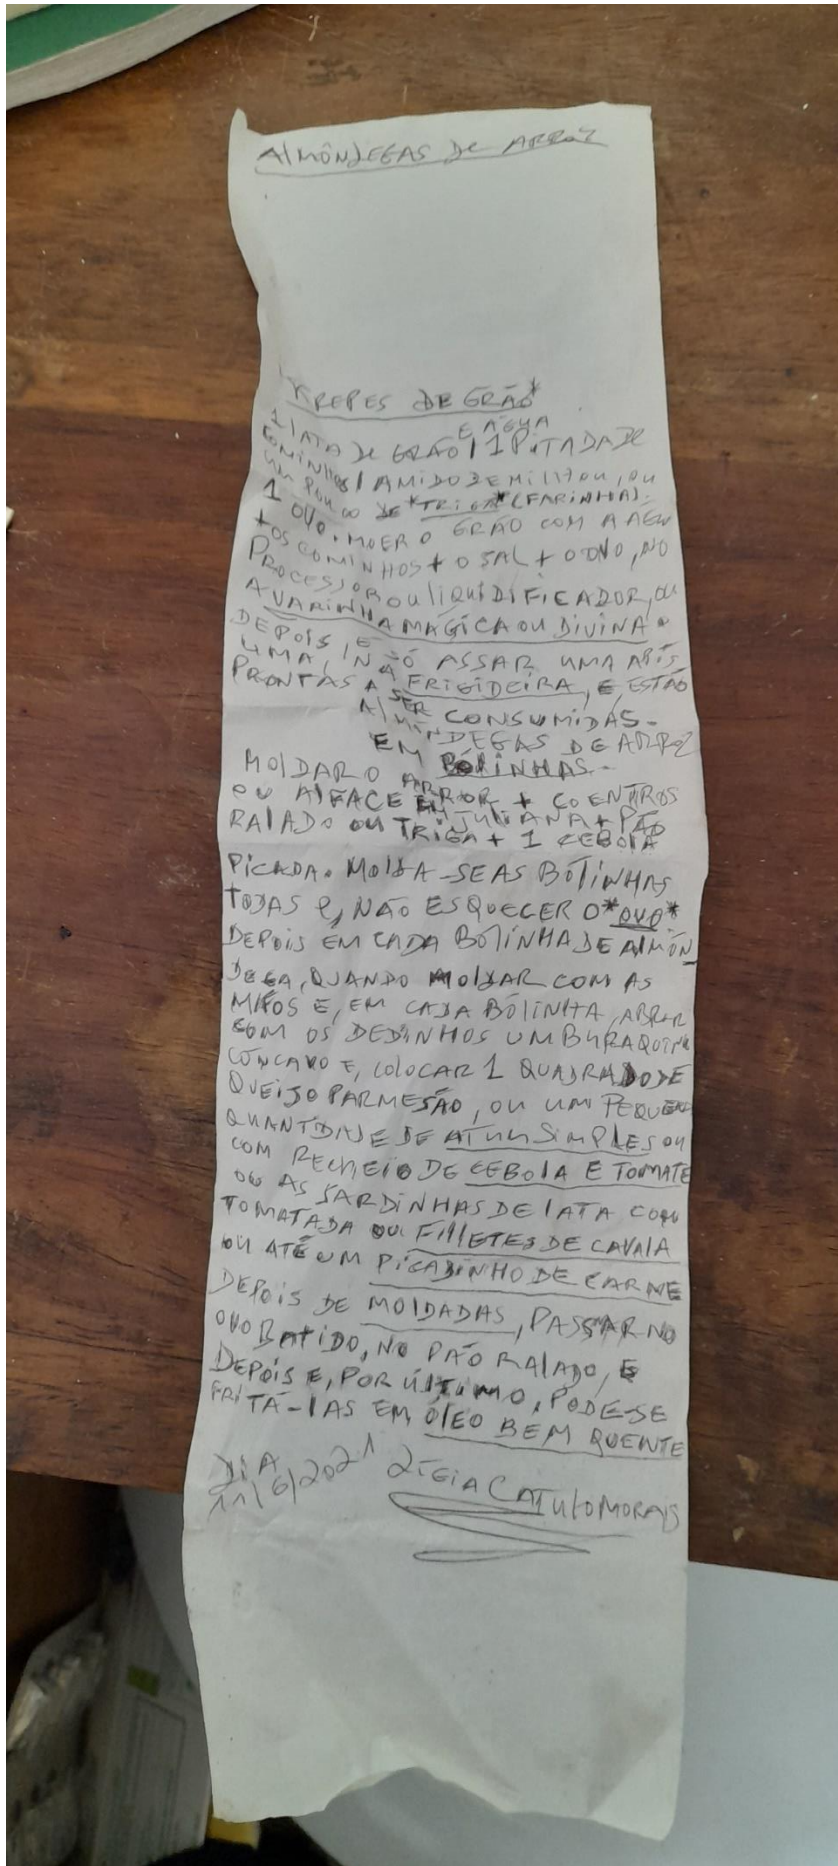 ALMÔNDEGAS DE ARROZ
KREPES DE GRÃO*
1 LATA DE GRÃO E ÁGUA / 1 PITADA DE
COMINHOS / AMIDO DE MILHO OU, OU
UM POUCO DE *TRIGO* (FARINHA).
1 OVO. MOER O GRÃO COM A ÁGUA
+ OS COMINHOS + O SAL + O OVO, NO
PROCESSOR OU LIQUIDIFICADOR, OU
A VARINHA MÁGICA OU DIVINA.
DEPOIS, É SÓ ASSAR UMA APÓS
UMA, NA FRIGIDEIRA, E ESTÃO
PRONTAS A SER CONSUMIDAS.
ALMÔNDEGAS DE ARROZ
EM BÓLINHAS.
MOLDAR O ARROZ + COENTROS
OU ALFACE EM JULIANA + PÃO
RALADO OU TRIGO + 1 CEBOLA
PICADA. MOLDA-SE AS BÓLINHAS
TODAS E, NÃO ESQUECER O *OVO*
DEPOIS EM CADA BÓLINHA DE ALMÔN
DEGA, QUANDO MOLDAR COM AS
MÃOS E, EM CADA BÓLINHA, ABRIR
COM OS DEDINHOS UM BURAQUINHO
CÔNCAVO E, COLOCAR 1 QUADRADO DE
QUEIJO PARMESÃO, OU UM PEQUENO
QUANTDADE DE ATUM SIMPLES OU
COM RECHEIO DE CEBOLA E TOMATE
OU AS SARDINHAS DE LATA COM
TOMATADA OU FILLETES DE CAVALA
OU ATÉ UM PICADINHO DE CARNE
DEPOIS DE MOLDADAS, PASSAR NO
OVO BATIDO, NO PÃO RALADO, E
DEPOIS E, POR ÚLTIMO, PODE-SE
FRITÁ-LAS EM ÓLEO BEM QUENTE
DIA 11/6/2021 LÍGIA CATULO MORAIS